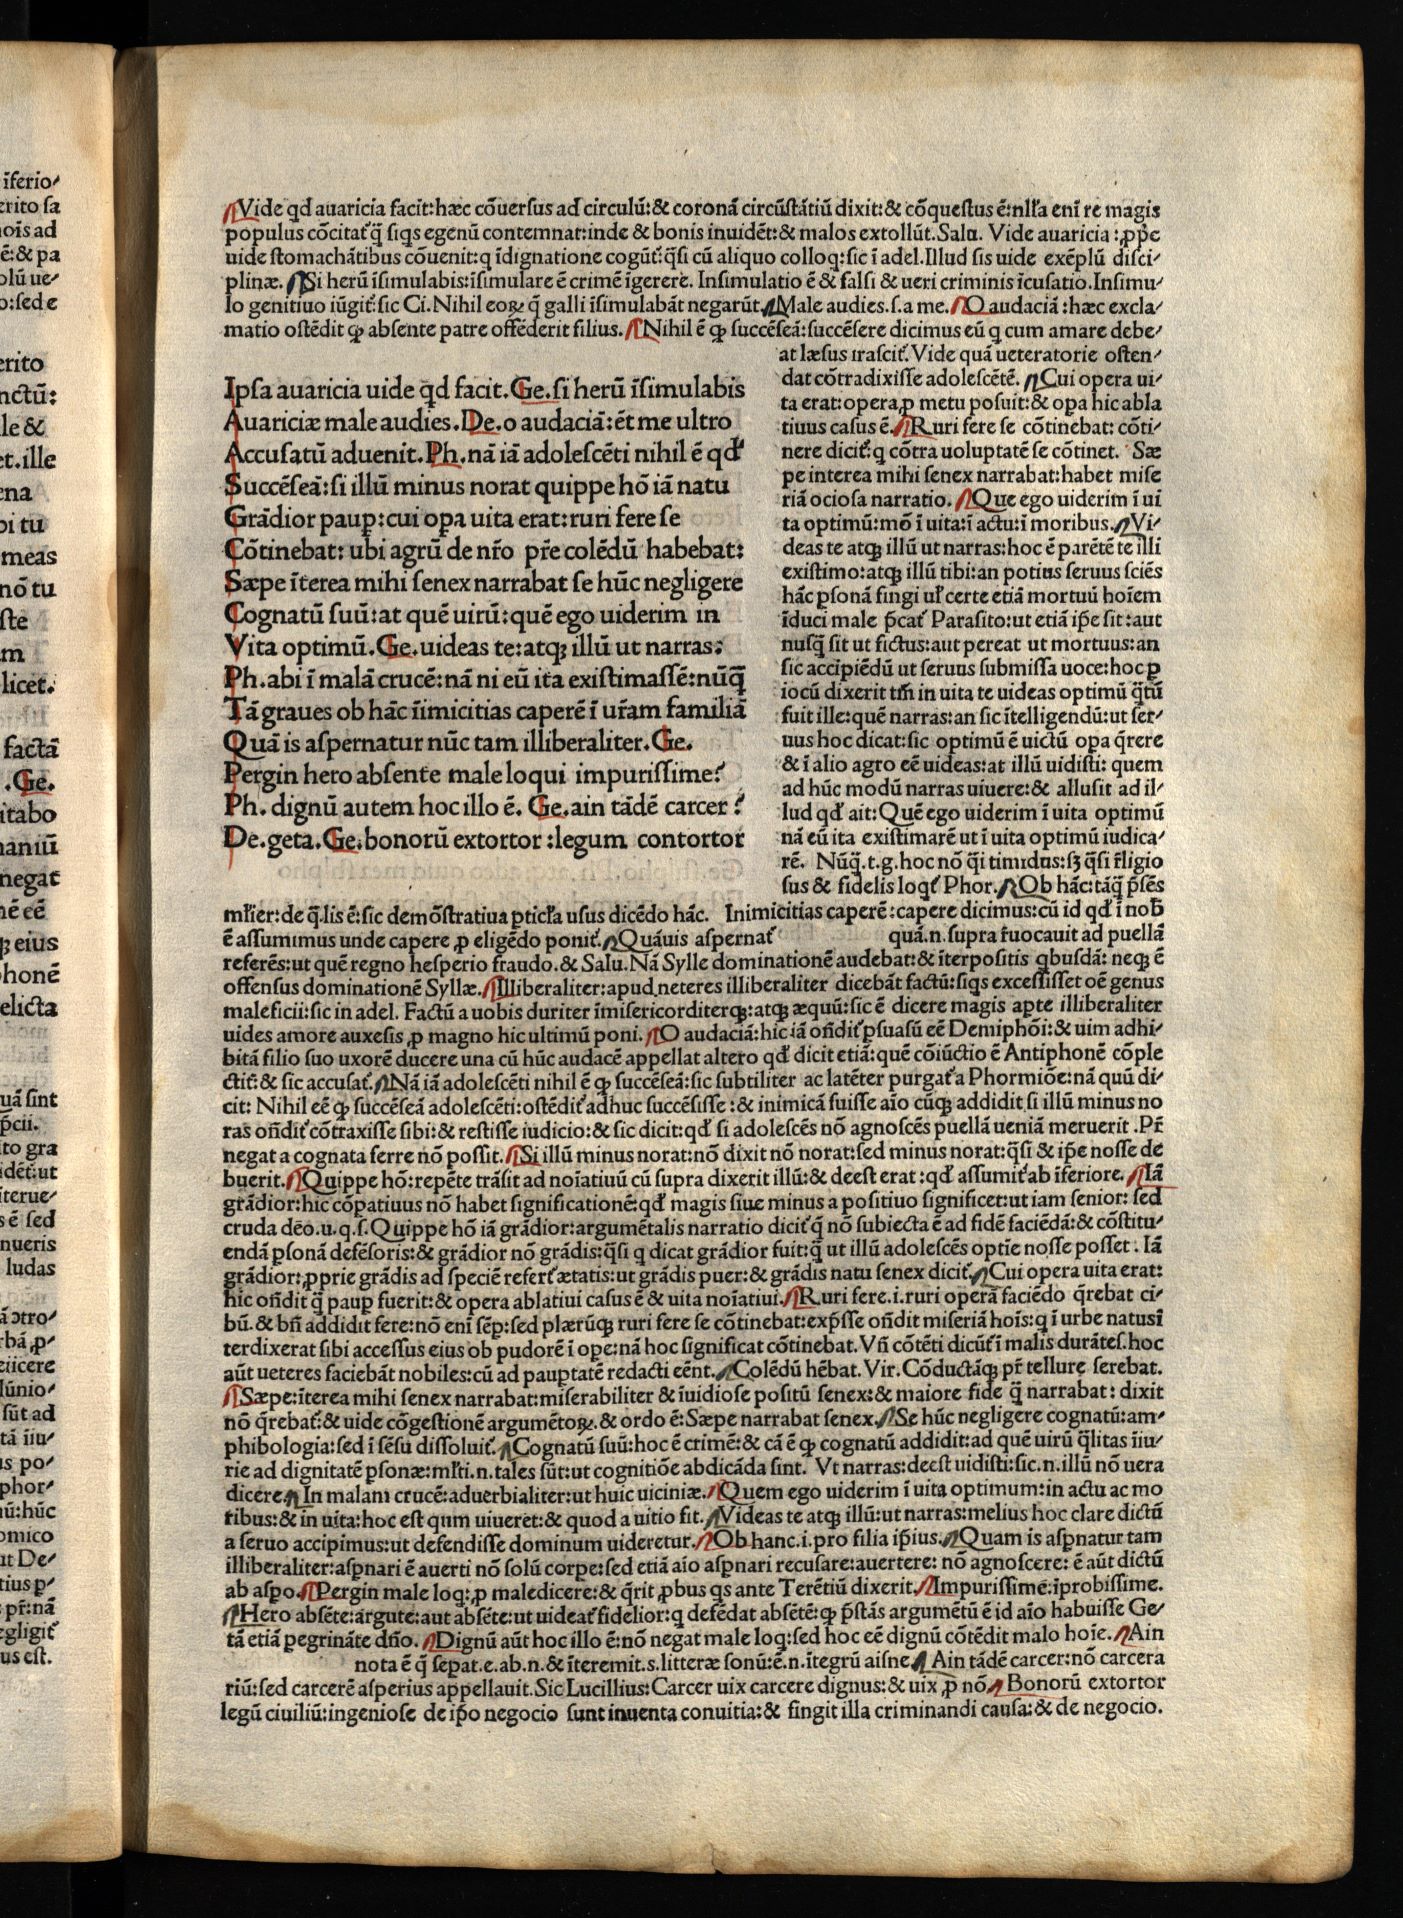 Vide qđ auaricia facit:hæc cōuersus ad circulū:& coronā circūstātiū dixit:& cōquestus ē:nłła enī re magis
populus cōcitať q̄ siqs egenū contemnat:inde & bonis inuidēt:& malos extollūt.Salu. Vide auaricia :ꝓp̄e
uide stomachātibus cōuenit:q īdignatione cogūť:q̄si cū aliquo colloq:sic ī adel.Illud sis uide exēplū disci⸗
plinæ. Si herū īsimulabis:īsimulare ē crimē īgerere. Insimulatio ē & falsi & ueri criminis īcusatio.Insimu⸗
lo genitiuo iūgiť:sic Ci.Nihil eoꝝ q̄ galli īsimulabāt negarūt. Male audies.s.a me. O audaciā :hæc excla⸗
matio ostēdit ꝙ absente patre offēderit filius. Nihil ē ꝙ succēseā:succēsere dicimus eū q cum amare debe⸗
Ipsa auaricia uide qđ facit.Ge.si herū īsimulabis
Auariciæ male audies.De.o audaciā:ēt me ultro
Accusatū aduenit.Ph.nā iā adolescēti nihil ē qđ
Succēseā:si illū minus norat quippe hō iā natu
Grādior paup:cui opa uita erat:ruri fere se
Cōtinebat: ubi agrū de nr̄o pr̄e colēdū habebat:
Sæpe īterea mihi senex narrabat se hūc negligere
Cognatū suū:at quē uirū:quē ego uiderim in
Vita optimū.Ge.uideas te:atqꝫ illū ut narras:
Ph.abi ī malā crucē:nā ni eū ita existimassē:nūq̄
Tā graues ob hāc īimicitias caperē ī ur̄am familiā
Quā is aspernatur nūc tam illiberaliter.Ge.
Pergin hero absente male loqui impurissime?
Ph. dignū autem hoc illo ē. Ge.ain tādē carcer ?
De.geta.Ge.bonorū extortor :legum contortor
at læsus irasciť.Vide quā ueteratorie osten⸗
dat cōtradixisse adolescētē. Cui opera ui⸗
ta erat:opera,ꝓ metu posuit:& opa hic abla
tiuus casus ē. Ruri fere se cōtinebat: cōti⸗
nere diciť:q cōtra uoluptatē se cōtinet. Sæ
pe interea mihi senex narrabat:habet mise
riā ociosa narratio. Que ego uiderim ī ui
ta optimū:mō ī uita:ī actu:ī moribus. Vi⸗
deas te atqꝫ illū ut narras:hoc ē parētē te illi
existimo:atqꝫ illū tibi:an potius seruus sciēs
hāc ꝑsonā fingi uł certe etiā mortuū hoīem
īduci male p̄cať Parasito:ut etiā ip̄e sit:aut
nusq̄ sit ut fictus:aut pereat ut mortuus:an
sic accipiēdū ut seruus submissa uoce:hoc ꝑ
iocū dixerit tm̄ in uita te uideas optimū q̄tū
fuit ille:quē narras:an sic ītelligendū:ut ser⸗
uus hoc dicat:sic optimū ē uictū opa q̄rere
& ī alio agro eē uideas:at illū uidisti: quem
ad hūc modū narras uiuere:& allusit ad il⸗
lud qđ ait:Quē ego uiderim ī uita optimū
nā eū ita existimarē ut ī uita optimū iudica⸗
rē. Nūq̄.t.g.hoc nō q̄i timidus:sꝫ q̄si r̄ligio
sus & fidelis loqť Phor. Ob hāc:tāq̄ p̄sēs
młier:de q̄.lis ē:sic demōstratiua ꝑticła usus dicēdo hāc. Inimicitias caperē:capere dicimus:cū id qđ ī noƀ
ē assumimus unde capere ꝓ eligēdo poniť. Quāuis aspernať quā.n.supra r̄uocauit ad puellā
referēs:ut quē regno hesperio fraudo.& Salu.Nā Sylle dominationē audebat:& īterpositis qbusdā: neqꝫ ē
offensus dominationē Syllæ. Illiberaliter:apud.neteres illiberaliter dicebāt factū:siqs excessisset oē genus
maleficii:sic in adel. Factū a uobis duriter īmisericorditerqꝫ:atqꝫ æquū:sic ē dicere magis apte illiberaliter
uides amore auxesis ꝓ magno hic ultimū poni. O audaciā:hic iā on̄diť ꝑsuasū eē Demiphōi:& uim adhi⸗
bitā filio suo uxorē ducere una cū hūc audacē appellat altero qđ dicit etiā:quē cōiūctio ē Antiphonē cōple
ctiť:& sic accusať. Nā iā adolescēti nihil ē ꝙ succēseā:sic subtiliter ac latēter purgať a Phormiōe:nā quū di⸗
cit: Nihil eē ꝙ succēseā adolescēti:ostēdiť adhuc succēsisse :& inimicā fuisse aīo cūqꝫ addidit si illū minus no
ras on̄diť cōtraxisse sibi:& restisse iudicio:& sic dicit:qđ si adolescēs nō agnoscēs puellā ueniā meruerit .Pr̄
negat a cognata ferre nō possit. Si illū minus norat:nō dixit nō norat:sed minus norat:q̄si & ip̄e nosse de
buerit. Quippe hō:repēte trāsit ad noīatiuū cū supra dixerit illū:& deest erat :qđ assumiť ab īferiore. Iā
grādior:hic cōpatiuus nō habet significationē:qđ magis siue minus a positiuo significet:ut iam senior: sed
cruda dēo.u.q.s.Quippe hō iā grādior:argumētalis narratio diciť q̄ nō subiecta ē ad fidē faciēdā:& cōstitu⸗
endā ꝑsonā defēsoris:& grādior nō grādis:q̄si q dicat grādior fuit:q̄ ut illū adolescēs optīe nosse posset. Iā
grādior:ꝓprie grādis ad speciē referť ætatis:ut grādis puer:& grādis natu senex diciť. Cui opera uita erat:
hic on̄dit q̄ paup fuerit:& opera ablatiui casus ē & uita noīatiui. Ruri fere.i.ruri operā faciēdo q̄rebat ci⸗
bū.& bn̄ addidit fere:nō enī sēꝑ:sed plærūqꝫ ruri fere se cōtinebat:exp̄sse on̄dit miseriā hoīs:q ī urbe natusī
terdixerat sibi accessus eius ob pudorē ī ope:nā hoc significat cōtinebat. Vn̄ cōtēti dicūť ī malis durātes.hoc
aūt ueteres faciebāt nobiles:cū ad pauptatē redacti eēnt. Colēdū hēbat. Vir. Cōductāqꝫ pr̄ tellure serebat.
Sæpe:īterea mihi senex narrabat:miserabiliter & īuidiose positū senex:& maiore fide q̄ narrabat: dixit
nō q̄rebať:& uide cōgestionē argumētoꝝ.& ordo ē:Sæpe narrabat senex. Se hūc negligere cognatū:am⸗
phibologia:sed ī sēsu dissoluiť. Cognatū suū:hoc ē crimē:& cā ē ꝙ cognatū addidit:ad quē uirū q̄litas īiu⸗
rie ad dignitatē ꝑsonæ:młti.n.tales sūt:ut cognitiōe abdicāda sint. Vt narras:deest uidisti:sic.n.illū nō uera
dicere. In malam crucē:aduerbialiter:ut huic uiciniæ. Quem ego uiderim ī uita optimum:in actu ac mo
ribus:& in uita:hoc est qum uiueret:& quod a uitio fit. Videas te atqꝫ illū:ut narras:melius hoc clare dictū
a seruo accipimus:ut defendisse dominum uideretur. Ob hanc.i.pro filia ip̄ius. Quam is aspnatur tam
illiberaliter:aspnari ē auerti nō solū corpe:sed etiā aīo aspnari recusare:auertere: nō agnoscere: ē aūt dictū
ab aspo. Pergin male loq:ꝓ maledicere:& q̄rit ꝓbus qs ante Terētiū dixerit. Impurissimē:īprobissime.
Hero absēte:argute:aut absēte:ut uideať fidelior:q defēdat absētē:ꝙ p̄stās argumētū ē id aīo habuisse Ge⸗
tā etiā pegrināte dn̄o. Dignū aūt hoc illo ē:nō negat male loq:sed hoc eē dignū cōtēdit malo hoīe. Ain
nota ē q̄ sepat.e.ab.n.& īteremit.s.litteræ sonū:ē.n.ītegrū aisne. Ain tādē carcer:nō carcera
riū:sed carcerē asperius appellauit.Sic Lucillius:Carcer uix carcere dignus:& uix ꝓ nō. Bonorū extortor
legū ciuiliū:ingeniose de ip̄o negocio sunt inuenta conuitia:& fingit illa criminandi causa:& de negocio.